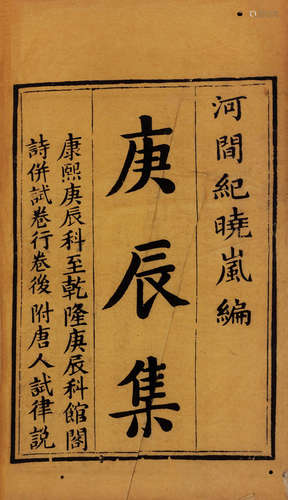 河間紀曉嵐編
庚辰集
康熙庚辰科至乾隆庚辰科館閣
詩併試卷行卷後附唐人試律說